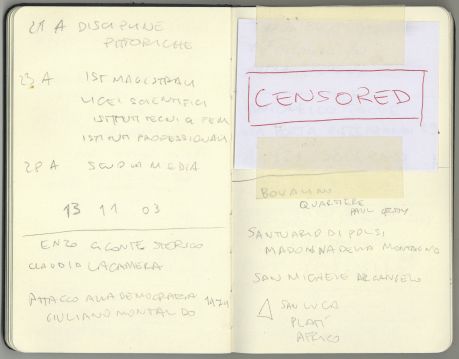 21 A DISCIPLINE
PITTORICHE
23 A IST MAGISTRALI
LICEI SCIENTIFICI
ISTITUTI TECNICI FEM
ISTITUTI PROFESSIONALI
28 A SCUOLA MEDIA
13 11 03
ENZO CICONTE STORICO
CLAUDIO LACAMERA
ATTACCO ALLA DEMOCRAZIA
GIULIANO MONTALDO
CENSORED
BOVALINO
QUARTIERE
PAUL GETTY
SANTUARIO DI POLSI
MADONNA DELLA MONTAGNA
SAN MICHELE ARCANGELO
SAN LUCA
PLATÍ
AFRICO